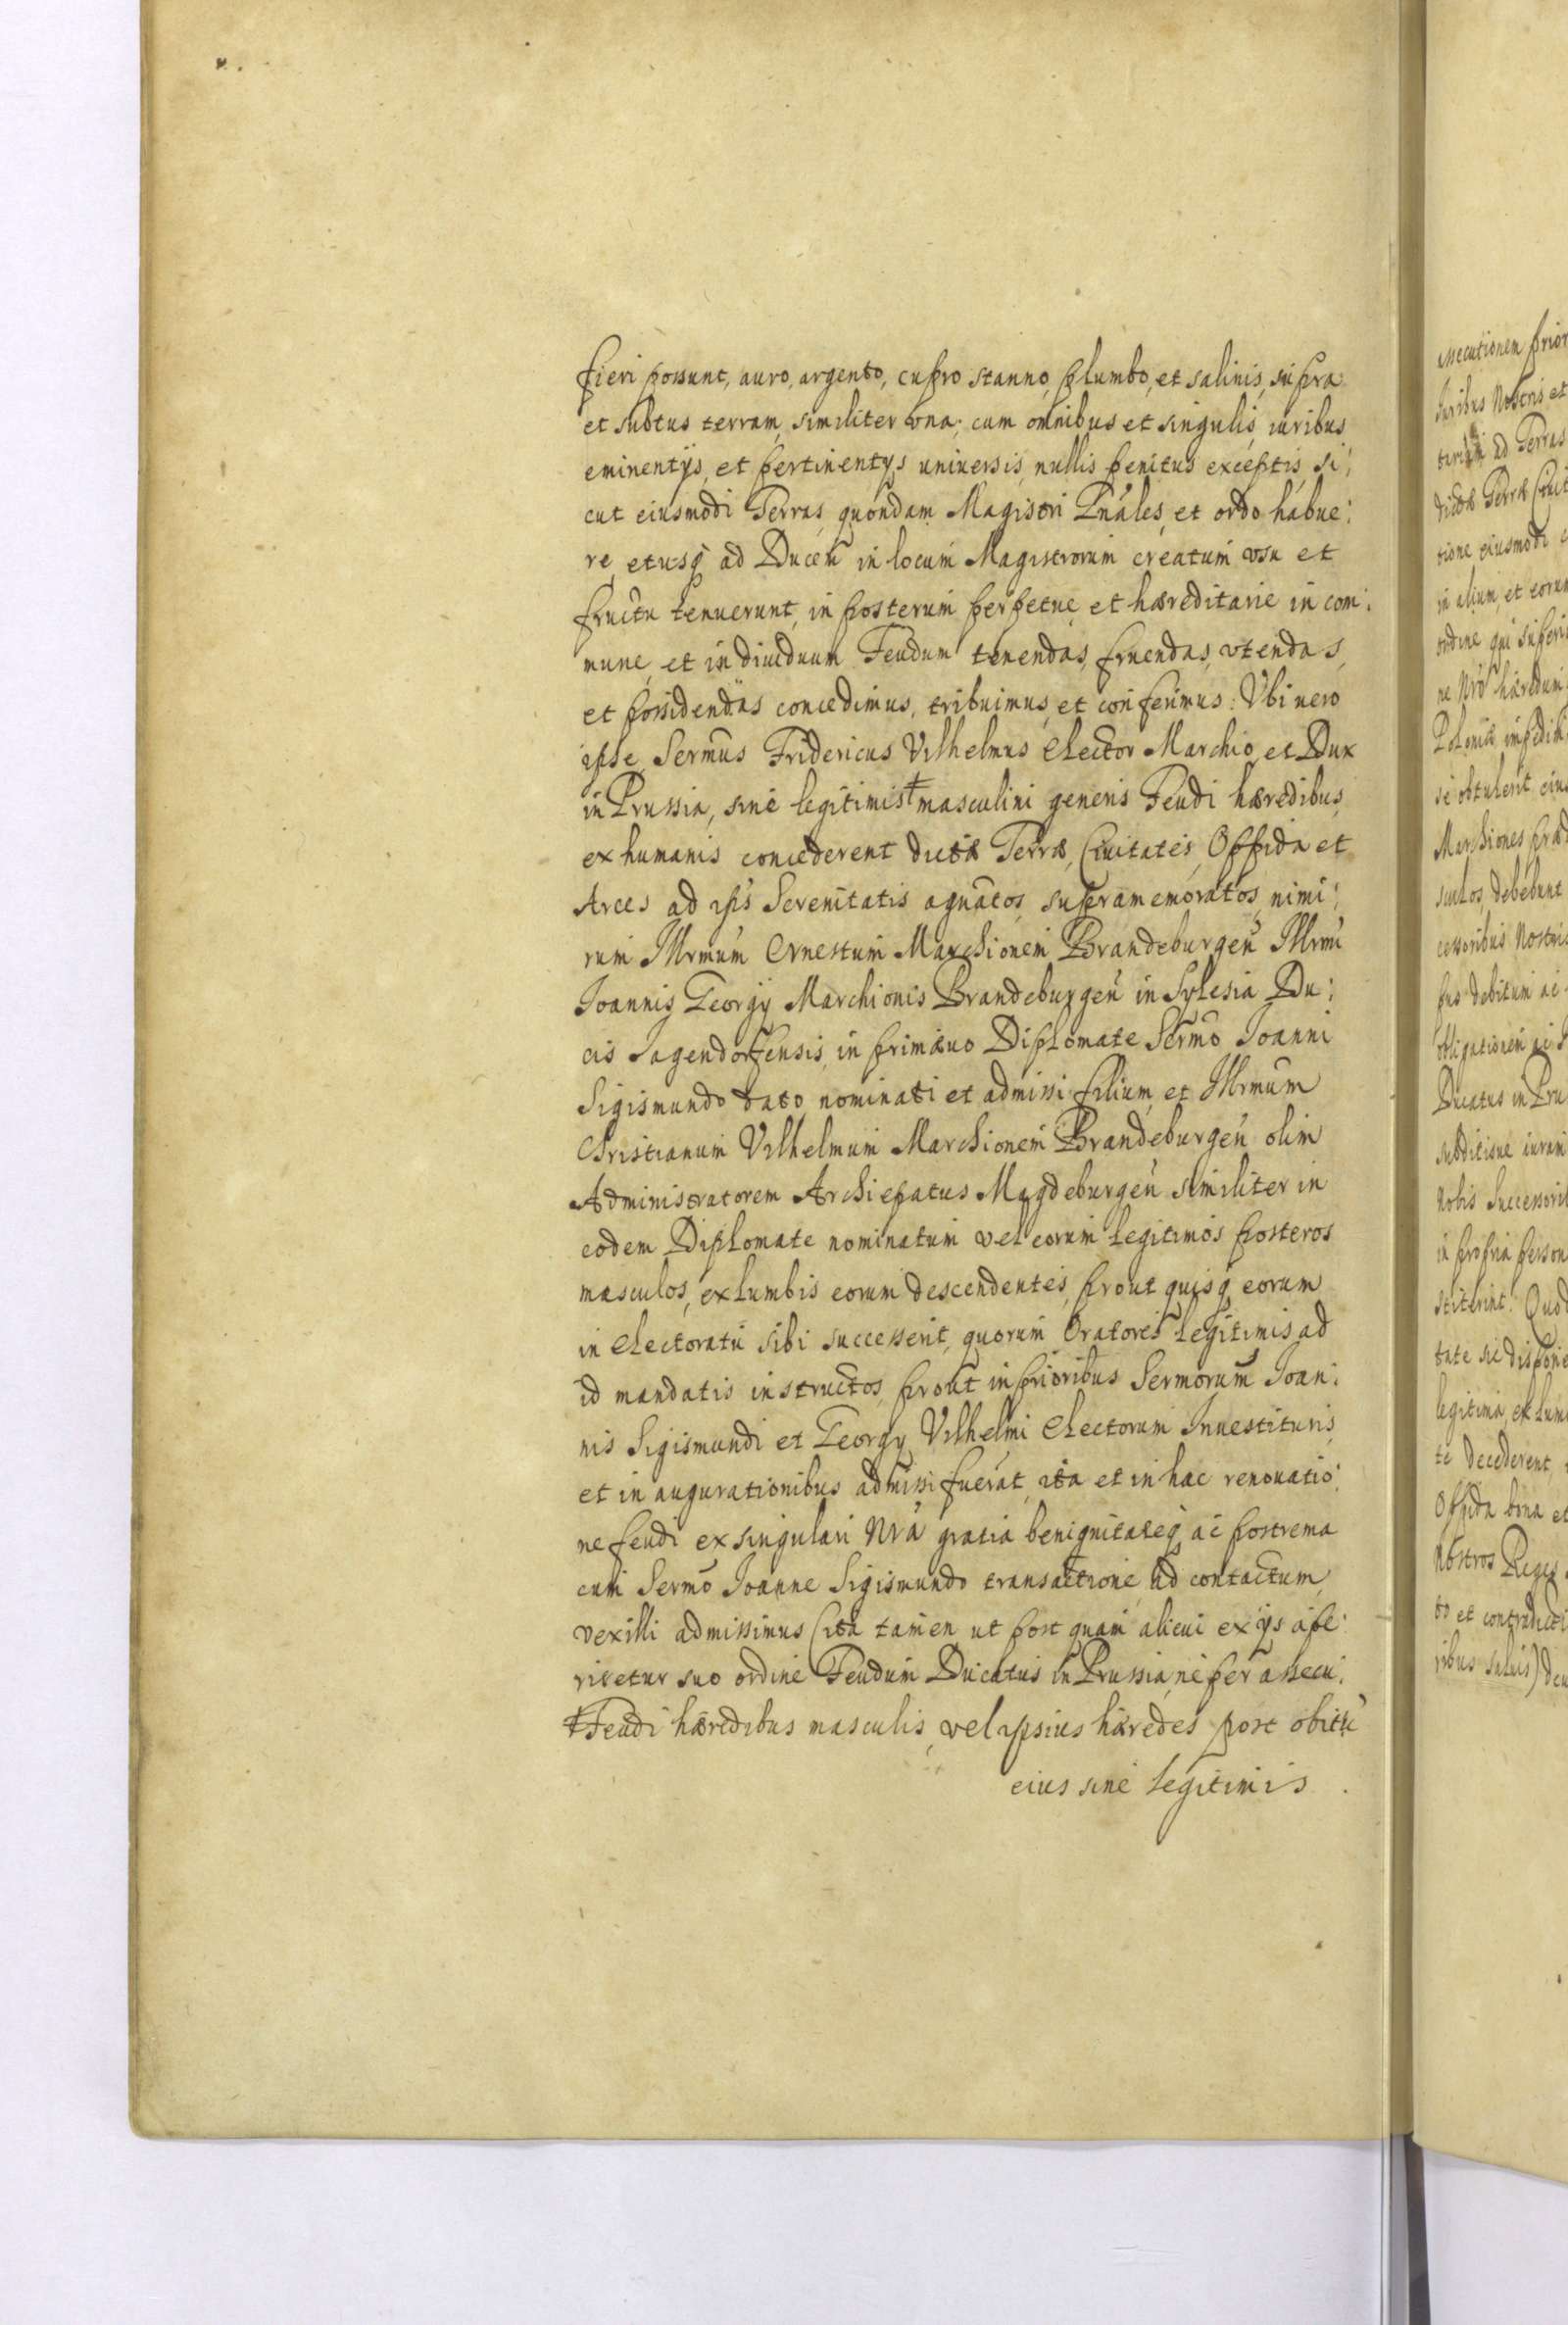 fieri possunt, auro, argento, cupro stanno, plumbo, et salinis, supra
et subtus terram, similiter vna, cum omnibus et singulis, iuribus
eminentijs, et pertinentijs uniuersis, nullis penitus exceptis, si:
cut eiusmodi Terras, quondam Magistri Gnãles, et ordo habue:
re, et usq ad Ducem in locum Magistrorum creatum vsu et
fructu tenuerunt, in posterum perpetue, et hæreditarie in com:
mune, et indiuiduum Feudum tenendas, fruendas, vtendas,
et possidendas concedimus, tribuimus, et conferimus. Vbi uero
ipse, Sermus Fridericus Vilhelmus Elector Marchio, et Dux
in Prussia, sine legitimis ‡ masculini generis Feudi hæredibus
ex humanis concederent dictæ Terræ, Ciuitates, Oppida et
Arces ad ips Serenitatis agnatos, supramemoratos, nimi:
rum Illrmum Ernestum Marchionem Brandeburgeñ Illrmi
Joannis Georgij Marchionis Brandeburgeñ in Sylesia Du:
cis Jagendorfensis, in primæuo Diplomate Sermo Joanni
Sigismundo dato, nominati et admissi filium, et Illrmum
Christianum Vilhelmum Marchionem Brandeburgeñ olim
Administratorem Archiepatus Magdeburgeñ similiter in
eodem Diplomate nominatum vel eorum legitimos posteros
masculos, ex lumbis eorum descendentes, prout quisq eorum
in Electoratu sibi successerit, quorum Oratores legitimis ad
id mandatis instructos, prout in prioribus Sermorum Joan:
nis Sigismundi et Georgij Vilhelmi Electorum Inuestituris
et in augurationibus admissi fuerãt, ita et in hac renouatio:
ne feudi ex singulari Nrã gratia benignitateq, ac postrema
cum Sermo Joanne Sigismundo transactione, ad contactum
vexilli admissimus (ita tamen ut post quam alicui ex ijs ape:
riretur suo ordine Feudum Ducatus in Prussia, ne per assecu:
‡ Feudi hæredibus masculis, vel ipsius hæredes post obitũ
eius sine legitimis
ssecutionem prior
Juribus Nostris, et
ad Terras
dictæ Terræ Ciuit
tione eiusmodi
in alium, et eorum
ordine qui superi
ne Nrõ hæredum
Poloniæ
se obtulerit
Marchiones præd
suctos, debebunt
cessoribus Nostris
pro debitum ac
obligationem
Ducatus in Pru
subditisue
Nobis Successorib
in propria person
stiterint. Quod
tate sic dispone
legitima, ex lum
te decederent,
Oppida bona et
Nostros Reges
to et contradicti
ribus saluis)